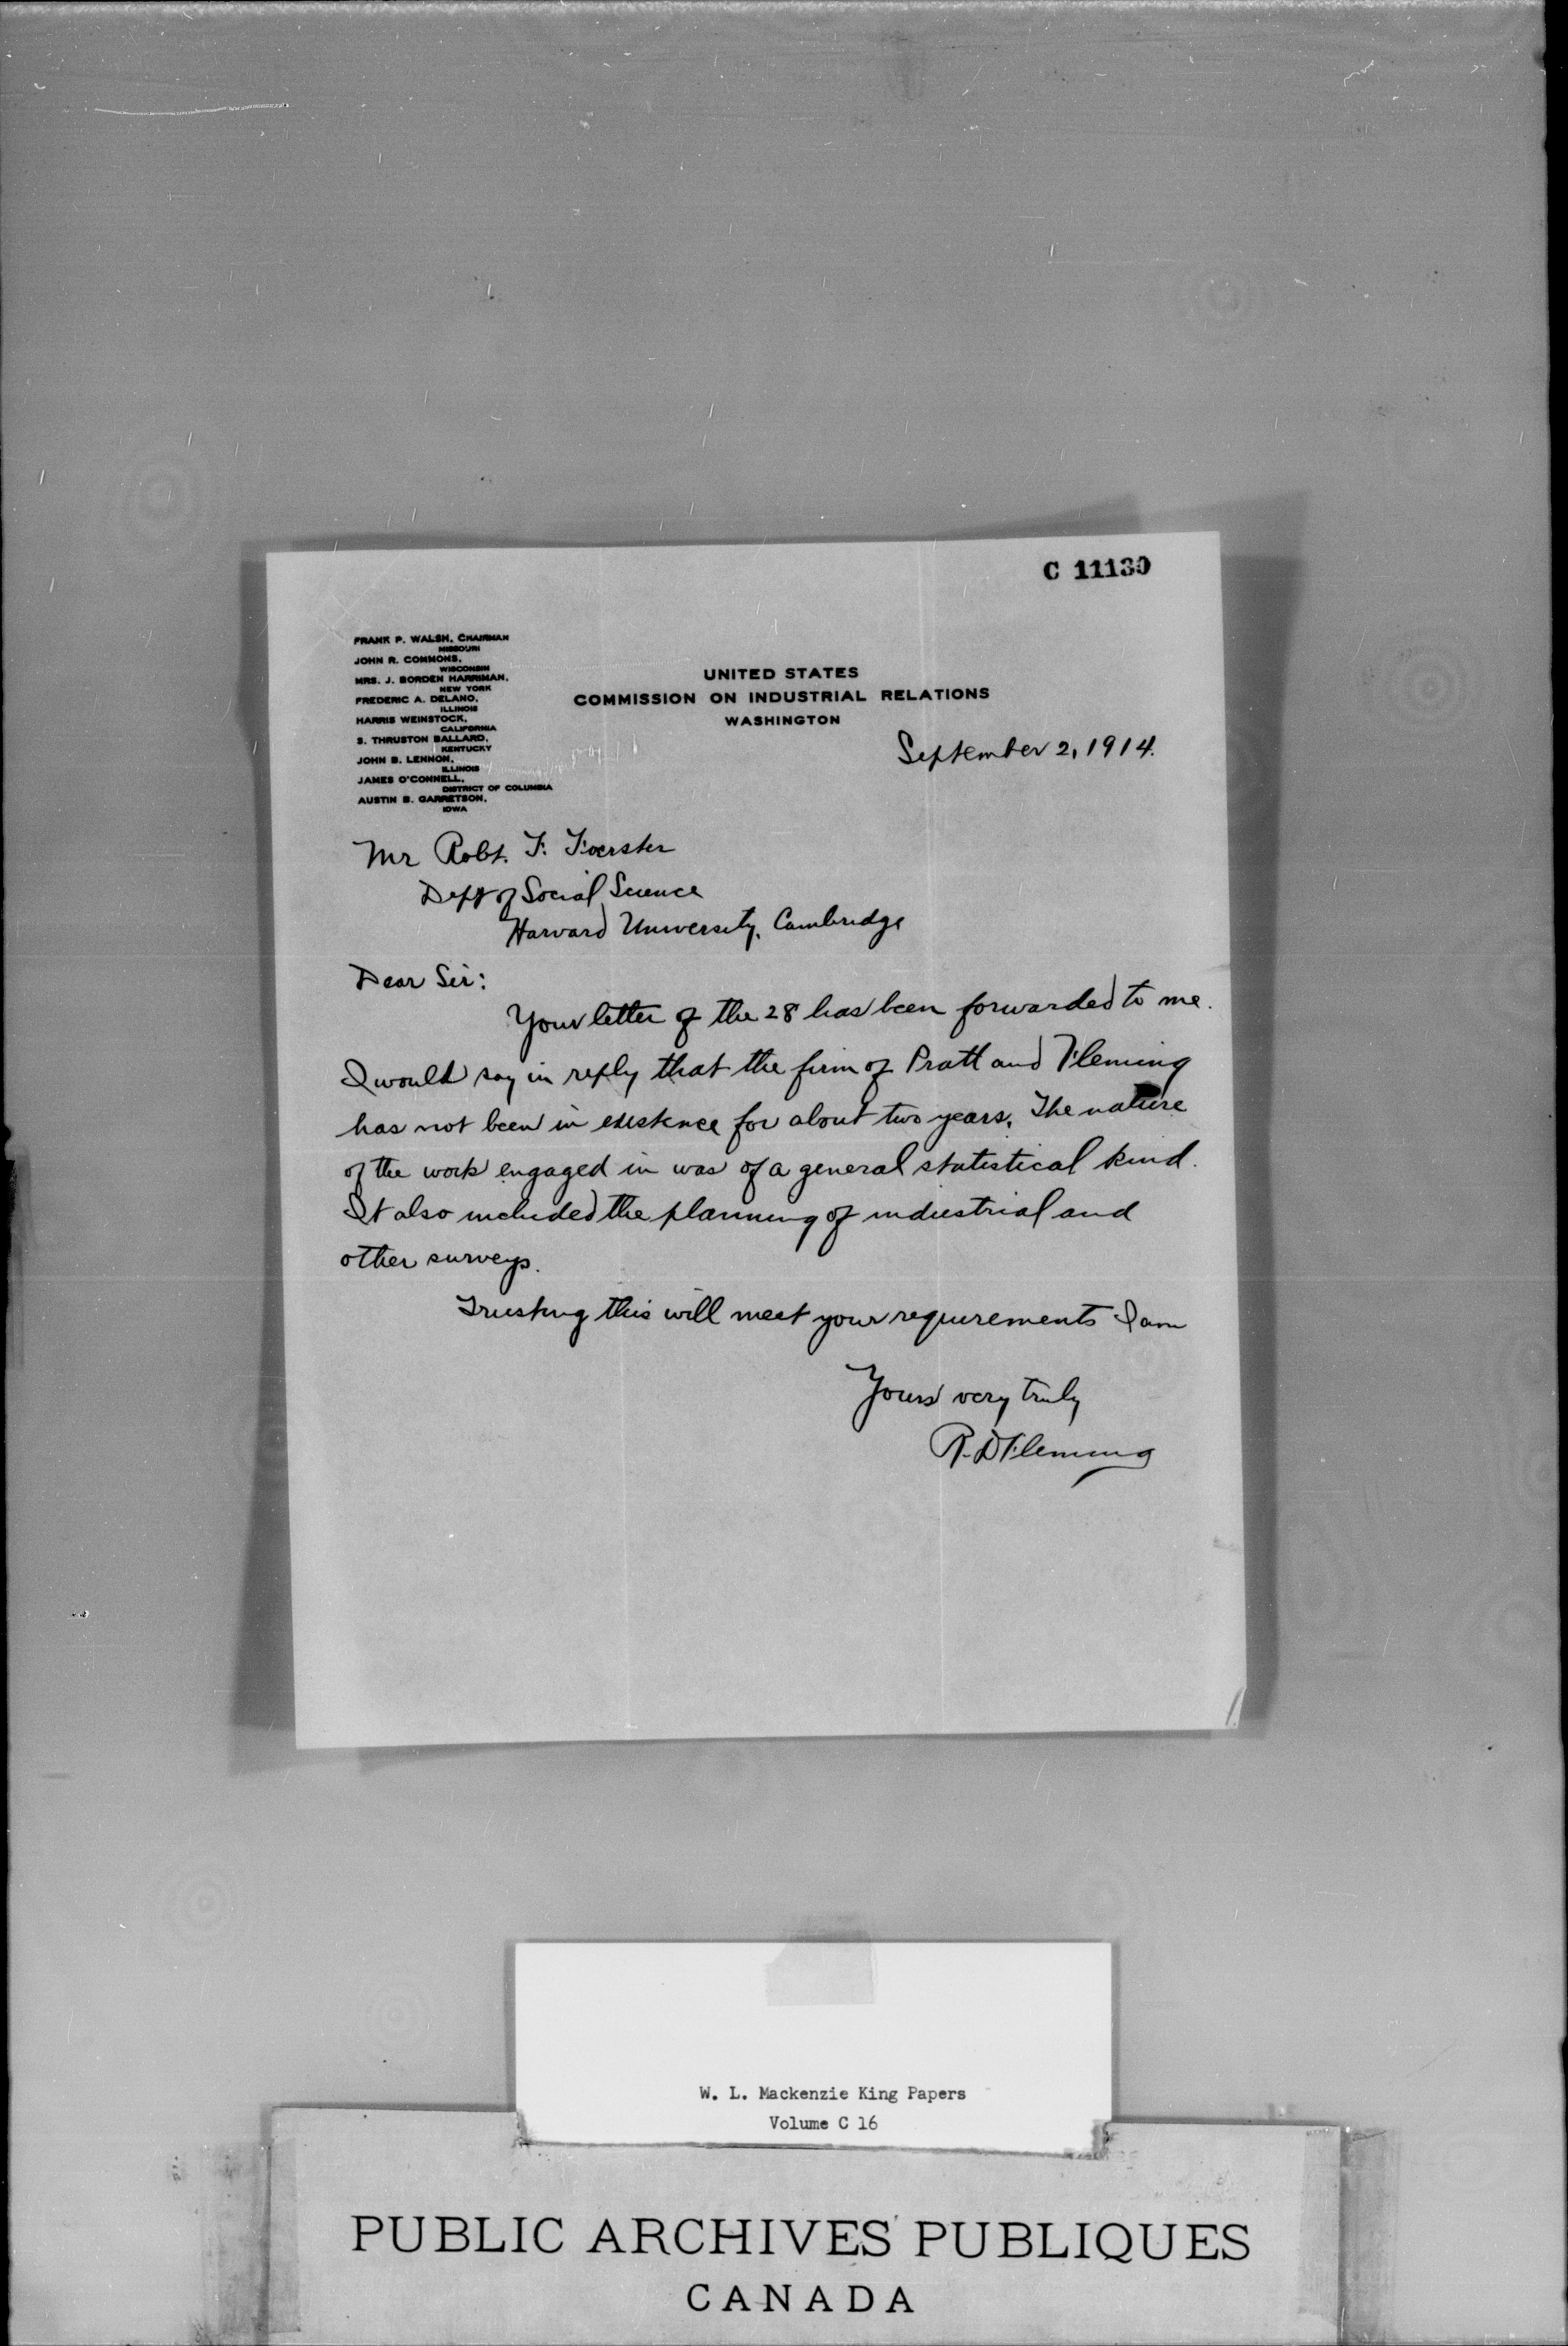 C 11130
FRANK P. WALSH, CHAIRMAN
MISSOURI
JOHN R. COMMONS,
WISCONSIN
MRS. J. BORDEN HARRIMAN,
NEW YORK
FREDERIC A. DELANO,
ILLINOIS
HARRIS WEINSTOCK,
CALIFORNIA
S. THRUSTON BALLARD,
KENTUCKY
JOHN B. LENNON,
ILLINOIS
JAMES O'CONNELL,
DISTRICT OF COLUMBIA
AUSTIN B. GARRETSON,
IOWA
UNITED STATES
COMMISSION ON INDUSTRIAL RELATIONS
WASHINGTON
September 2, 1914.
Mr Robt. F. Foerster
Dept of Social Science
Harvard University, Cambridge
Dear Sir:
Your letter of the 28 has been forwarded to me.
I would say in reply that the firm of Pratt and Fleming
has not been in existence for about two years. The nature
of the work engaged in was of a general statistical kind.
It also included the planning of industrial and
other surveys.
Trusting this will meet your requirements I am
Yours very truly
R. D Fleming
W. L. Mackenzie King Papers
Volume C 16
PUBLIC ARCHIVES PUBLIQUES
CANADA